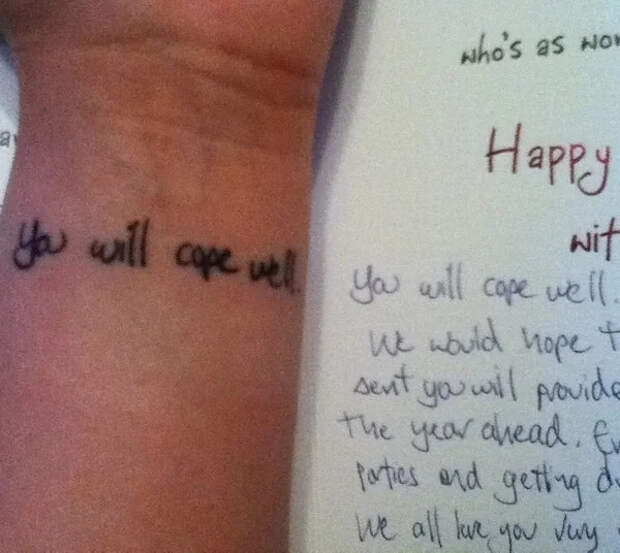 You will cope well.
who's as wo
Happy
wit
You will cope well.
We would hope t
sent you will provide
the year ahead. Ev
Parties and getting d
We all love you very